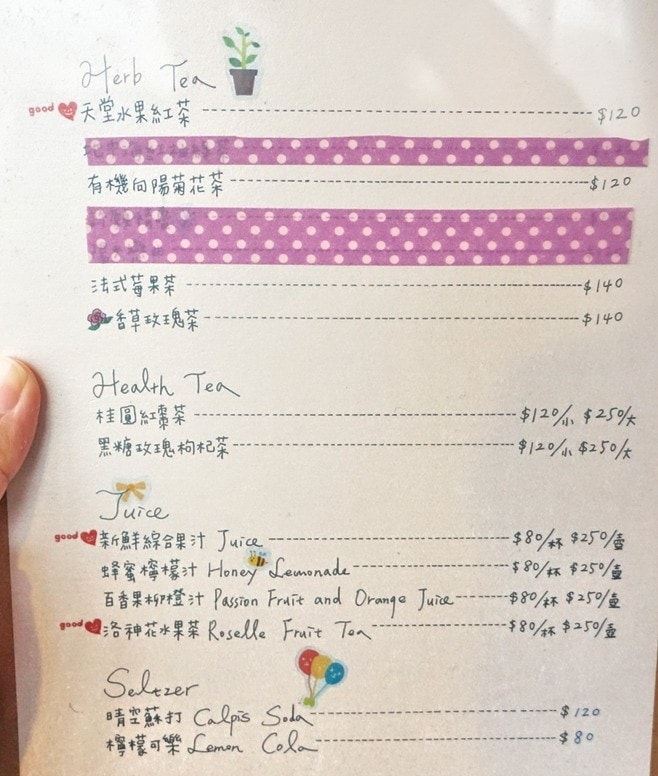 Herb Tea
good 天堂水果紅茶 $120
有機向陽菊花茶 $120
法式莓果茶 $140
香草玫瑰茶 $140
Health Tea
桂圓紅棗茶 $120/小 $250/大
黑糖玫瑰枸杞茶 $120/小 $250/大
Juice
good 新鮮綜合果汁 Juice $80/杯 $250/壺
蜂蜜檸檬汁 Honey Lemonade $80/杯 $250/壺
百香果柳橙汁 Passion Fruit and Orange Juice $80/杯 $250/壺
good 洛神花水果茶 Roselle Fruit Tea $80/杯 $250/壺
Seltzer
晴空蘇打 Calpis Soda $120
檸檬可樂 Lemon Cola $80